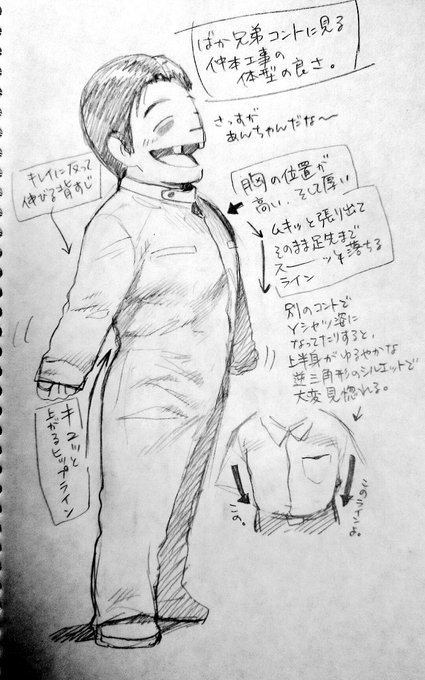 ばか兄弟コントに見る
仲本工事の
体型の良さ。
さっすが
あんちゃんだな〜
キレイに反って
伸びる背すじ
胸の位置が
高い、そして厚い
ムキッと張り出て
そのまま足先まで
スーーッと落ちる
ライン
別のコントで
Yシャツ姿に
なってたりすると、
上半身がゆるやかな
逆三角形のシルエットで
大変見惚れる。
キュッと
上がるヒップライン
この。
このラインよ。